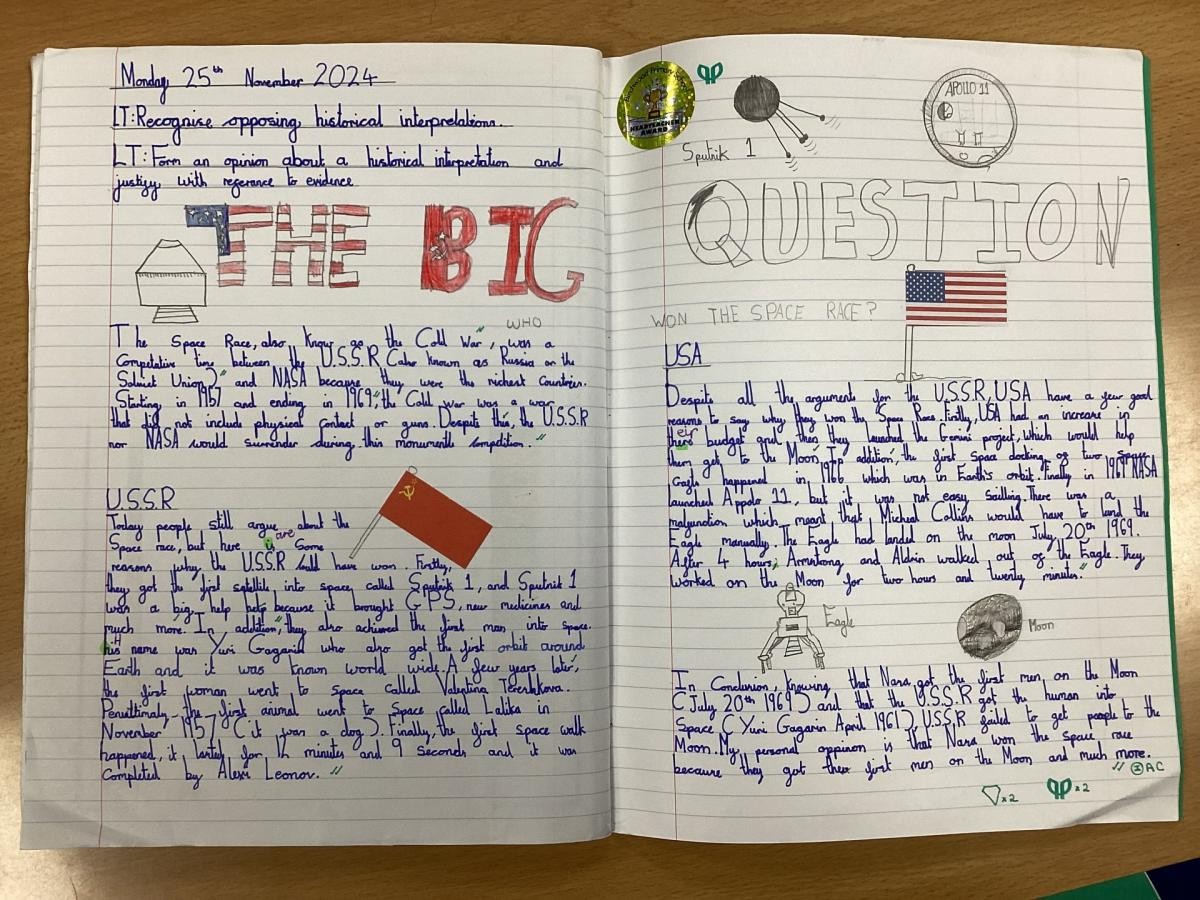 Monday 25th November 2024
LT:Recognise opposing historical interpretations.
LT:Form an opinion about a historical interpretation and
justify with referance to evidence
THE BIG
WHO
The Space Race, also know as the Cold War, was a
Competative time between the U.S.S.R (also known as Russia or the
Soviet Union) and NASA because they were the richest Countries.
Starting in 1957 and ending in 1969, the Cold War was a war
that did not include physical contact or guns. Despite this, the U.S.S.R
nor NASA would surrender during this monumentle compition.
U.S.S.R
Today people still argue about the
are
Space race, but here is Some
reasons why the U.S.S.R could have won. Firstly,
they got the first satellite into space called Sputnik 1, and Sputnik 1
was a big help because it brought GPS, new medicines and
much more. In addition, they also achieved the first man into space.
his name was Yuri Gagarin who also got the first orbit around
Earth and it was known world wide. A few years later,
the first woman went to space called Valentina Tereshkova.
Penultimaly the first animal went to Space called Lalika in
November 1957 (it was a dog). Finally, the first space walk
happened, it lasted for 12 minutes and 9 Seconds and it was
Completed by Alexi Leonov.
HEADTEACHER AWARD
Sputnik 1
APOLLO 11
QUESTION
WON THE SPACE RACE?
USA
Despite all the arguments for the U.S.S.R, USA have a few good
reasons to say why they won the Space Race. Firstly, USA had an increase in
eir
there budget and then they launched the Gemini project, which would help
them get to the Moon. In addition, the first space docking of two space
crafts happened in 1966 which was in Earth's orbit. Finally in 1969 NASA
launched Appolo 11, but it was not easy sailling. There was a
malfunction which meant that Micheal Collins would have to land the
Eagle manually. The Eagle had landed on the moon July 20th 1969.
After 4 hours, Armstrong and Aldrin walked out of the Eagle. They
worked on the Moon for two hours and twenty minutes.
Eagle
Moon
In Conclusion, knowing that Nasa got the first men on the Moon
(July 20th 1969) and that the U.S.S.R got the human into
Space (Yuri Gagarin April 1961). U.S.S.R failed to get people to the
Moon. My personal oppinion is that Nasa won the space race
because they got the first men on the Moon and much more.
AC
x2
x2